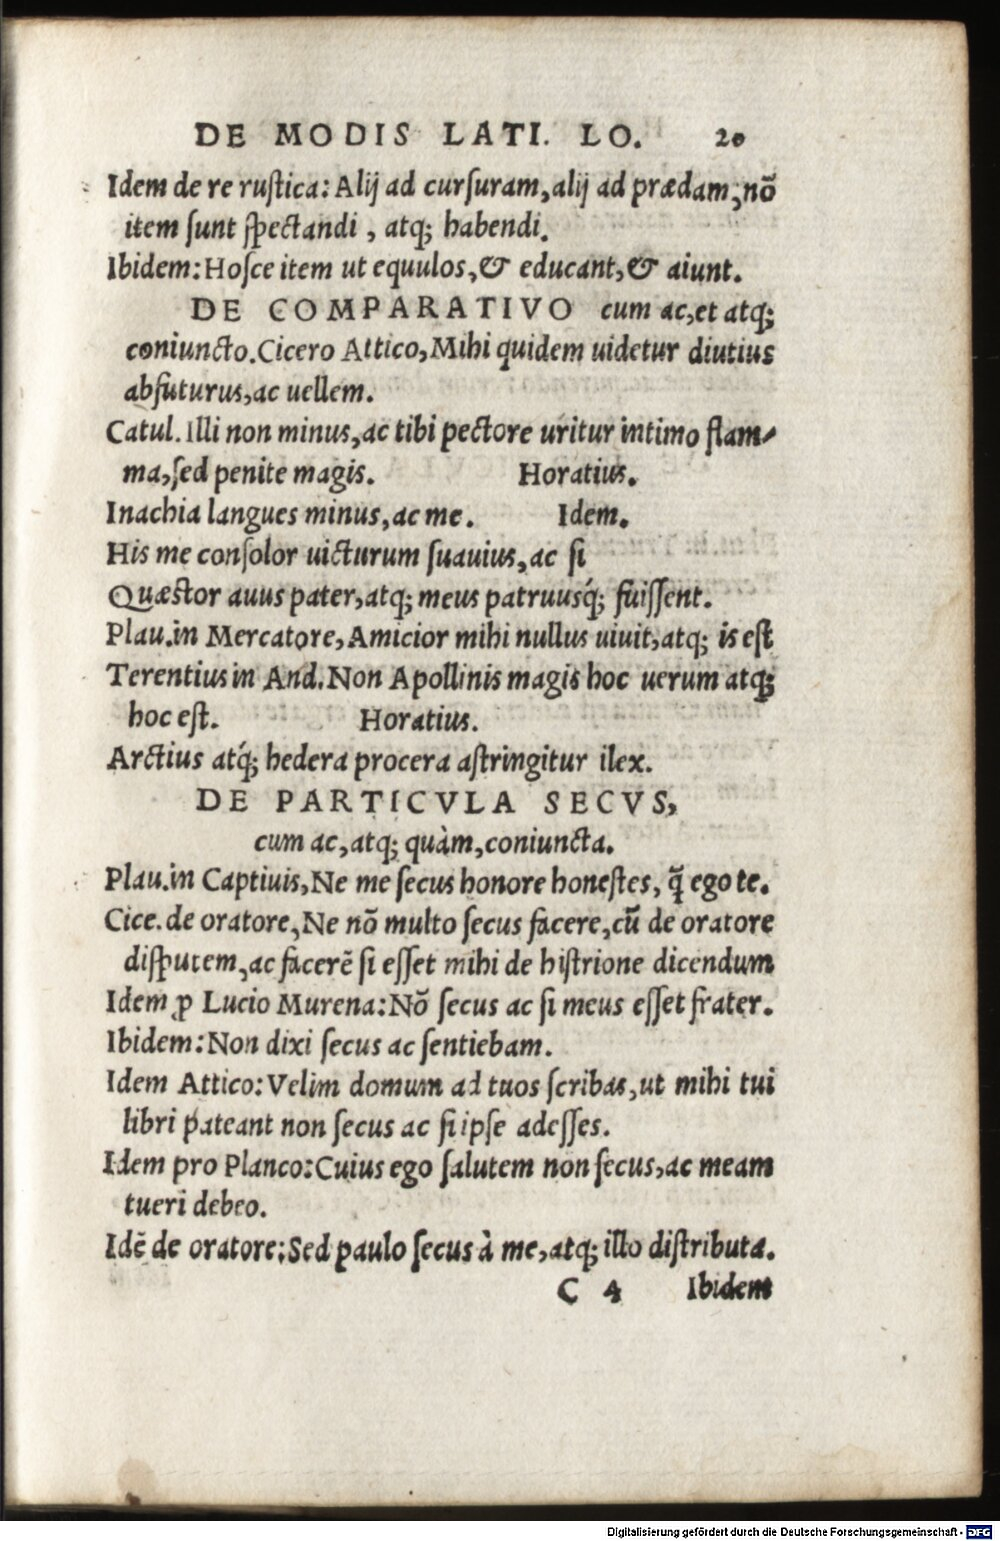 DE MODIS LATI. LO. 20
Idem de re rustica: Alij ad cursuram, alij ad prædam, nō
item sunt spectandi, atq; habendi.
Ibidem: Hosce item ut equulos, & educant, & aiunt.
DE COMPARATIVO cum ac, et atq;
coniuncto. Cicero Attico, Mihi quidem uidetur diutius
abfuturus, ac uellem.
Catul. Illi non minus, ac tibi pectore uritur intimo flam-
ma, sed penite magis. Horatius.
Inachia langues minus, ac me. Idem.
His me consolor uicturum suauius, ac si
Quæstor auus pater, atq; meus patruusq́; fuissent.
Plau. in Mercatore, Amicior mihi nullus uiuit, atq; is est
Terentius in And. Non Apollinis magis hoc uerum atq;
hoc est. Horatius.
Arctius atq́; hedera procera astringitur ilex.
DE PARTICVLA SECVS,
cum ac, atq; quàm, coniuncta.
Plau. in Captiuis, Ne me secus honore honestes, q̃ ego te.
Cice. de oratore, Ne nō multo secus facere, cū de oratore
disputem, ac facerē si esset mihi de histrione dicendum
Idem ꝓ Lucio Murena: Nō secus ac si meus esset frater.
Ibidem: Non dixi secus ac sentiebam.
Idem Attico: Velim domum ad tuos scribas, ut mihi tui
libri pateant non secus ac si ipse adesses.
Idem pro Planco: Cuius ego salutem non secus, ac meam
tueri debeo.
Idē de oratore: Sed paulo secus à me, atq; illo distributa.
C 4 Ibidem
Digitalisierung gefördert durch die Deutsche Forschungsgemeinschaft - DFG